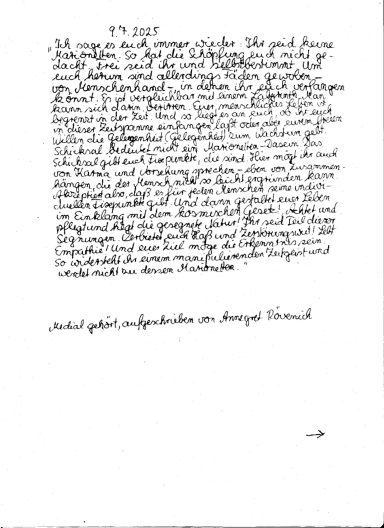 9.7.2025
"Ich sage es euch immer wieder: Ihr seid keine
Marionetten. So hat die Schöpfung euch nicht ge-
dacht. Frei seid ihr und selbstbestimmt. Um
euch herum sind allerdings Fäden gewoben –
von Menschenhand –, in denen ihr euch verfangen
könnt. Es ist vergleichbar mit einem Labyrinth. Man
kann sich darin verirren. Euer menschliches Leben ist
begrenzt in der Zeit. Und so liegt es an euch, ob ihr euch
in dieser Zeitspanne einfangen laßt oder aber eurem freien
Willen die Gelegenheit (Gelegenheit) zum Wachstum gebt.
Schicksal bedeutet nicht ein Marionetten-Dasein. Das
Schicksal gibt euch Fixpunkte, die sind. Hier mögt ihr auch
von Karma und Vorsehung sprechen – eben von Zusammen-
hängen, die der Mensch nicht so leicht ergründen kann.
Akzeptiert also, daß es für jeden Menschen seine indivi-
duellen Fixpunkte gibt. Und dann gestaltet euer Leben
im Einklang mit dem kosmischen Gesetz! Achtet und
pflegt und hegt die gesegnete Natur! Ihr seid Teil dieser
Segnungen. Verbietet euch Haß und Zerstörungswut! Lebt
Empathie! Und euer Ziel möge die Erkenntnis sein.
So widersteht ihr einem manipulierenden Zeitgeist und
werdet nicht zu dessen Marionette."
Medial gehört, aufgeschrieben von Annegret Rövenich
→